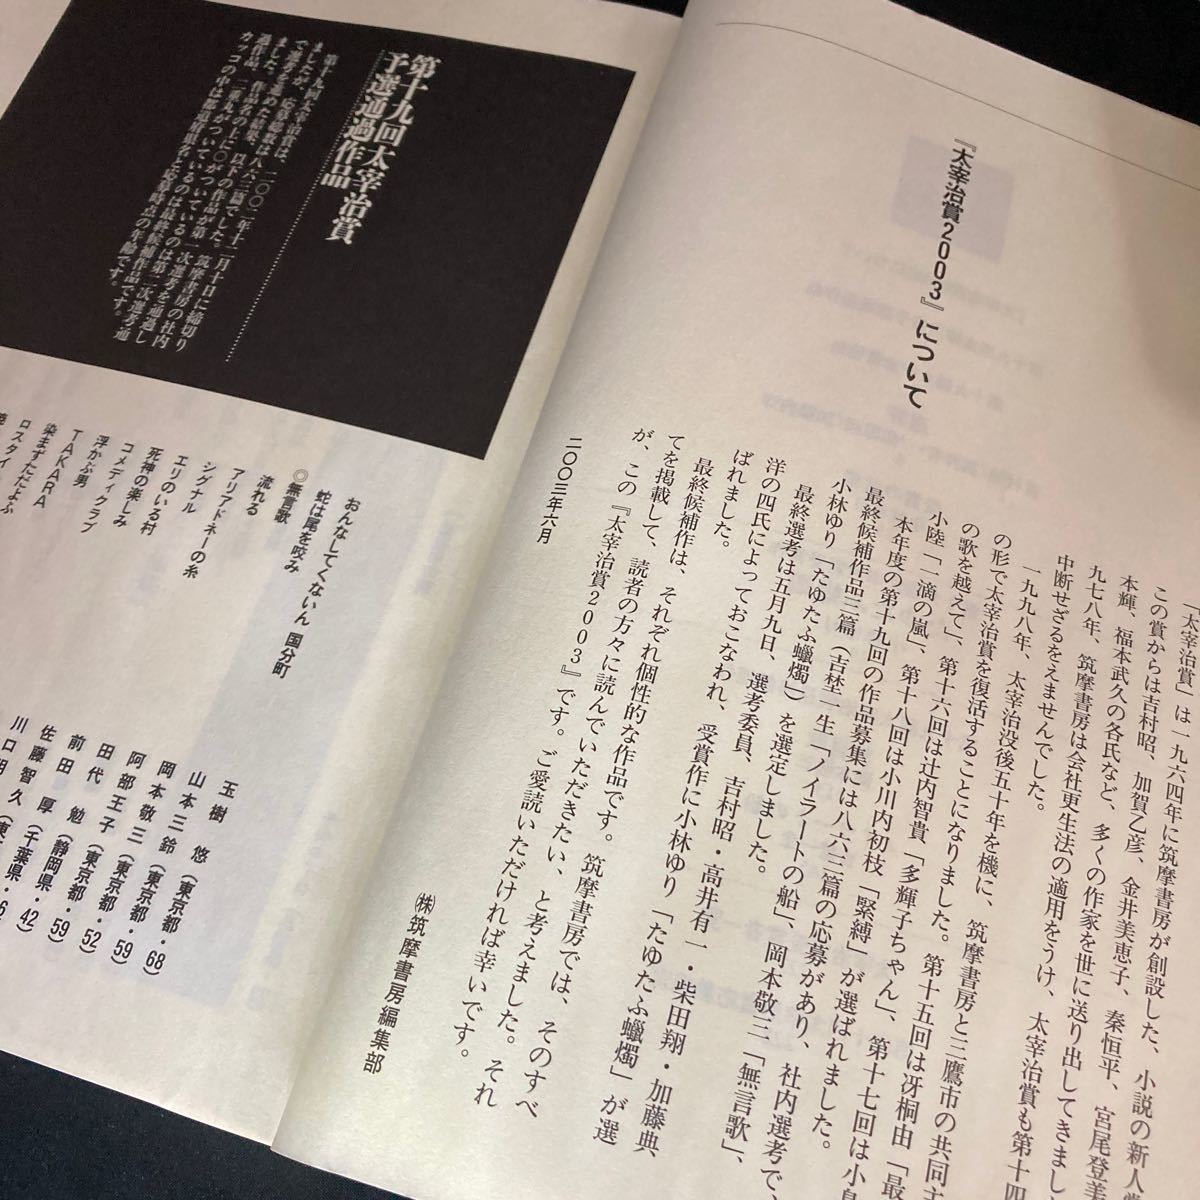 『太宰治賞2003』について
「太宰治賞」は一九六四年に筑摩書房が創設した、小説の新人
この賞からは吉村昭、加賀乙彦、金井美恵子、秦恒平、宮尾登美
本輝、福本武久の各氏など、多くの作家を世に送り出してきまし
九七八年、筑摩書房は会社更生法の適用をうけ、太宰治賞も第十四
中断せざるをえませんでした。
一九九八年、太宰治没後五十年を機に、筑摩書房と三鷹市の共同主
の形で太宰治賞を復活することになりました。第十五回は冴桐由「最
の歌を越えて」、第十六回は辻内智貴「多輝子ちゃん」、第十七回は小島
小陸「一滴の嵐」、第十八回は小川内初枝「緊縛」が選ばれました。
本年度の第十九回の作品募集には八六三篇の応募があり、社内選考で、
最終候補作品三篇（吉埜一生「ノイラートの船」、岡本敬三「無言歌」、
小林ゆり「たゆたふ蠟燭」）を選定しました。
最終選考は五月九日、選考委員、吉村昭・高井有一・柴田翔・加藤典
洋の四氏によっておこなわれ、受賞作に小林ゆり「たゆたふ蠟燭」が選
ばれました。
最終候補作は、それぞれ個性的な作品です。筑摩書房では、そのすべ
てを掲載して、読者の方々に読んでいただきたい、と考えました。それ
が、この『太宰治賞2003』です。ご愛読いただければ幸いです。
二〇〇三年六月
㈱筑摩書房編集部
第十九回太宰治賞
予選通過作品
第十九回太宰治賞は、二〇〇二年十二月十日に締切り
ましたが、応募総数は八六三篇でした。筑摩書房の社内
で選考を進めた結果、以下の作品が第一次選考を通過し
ました。作品名の上に○がついているのは第二次選考通
過作品、二重丸がついているのは最終候補作品です。
カッコの中は都道府県名と応募時点の年齢です。
おんなしてくないん 国分町
玉樹 悠
蛇は尾を咬み
山本三鈴（東京都・68）
◎無言歌
岡本敬三（東京都・59）
流れる
阿部王子（東京都・52）
アリアドネーの糸
田代 勉（静岡県・59）
シグナル
前田 厚（千葉県・42）
エリのいる村
佐藤智久
死神の楽しみ
川口明
コメディクラブ
浮かぶ男
TAKARA
染まずただよふ
ロスタイ